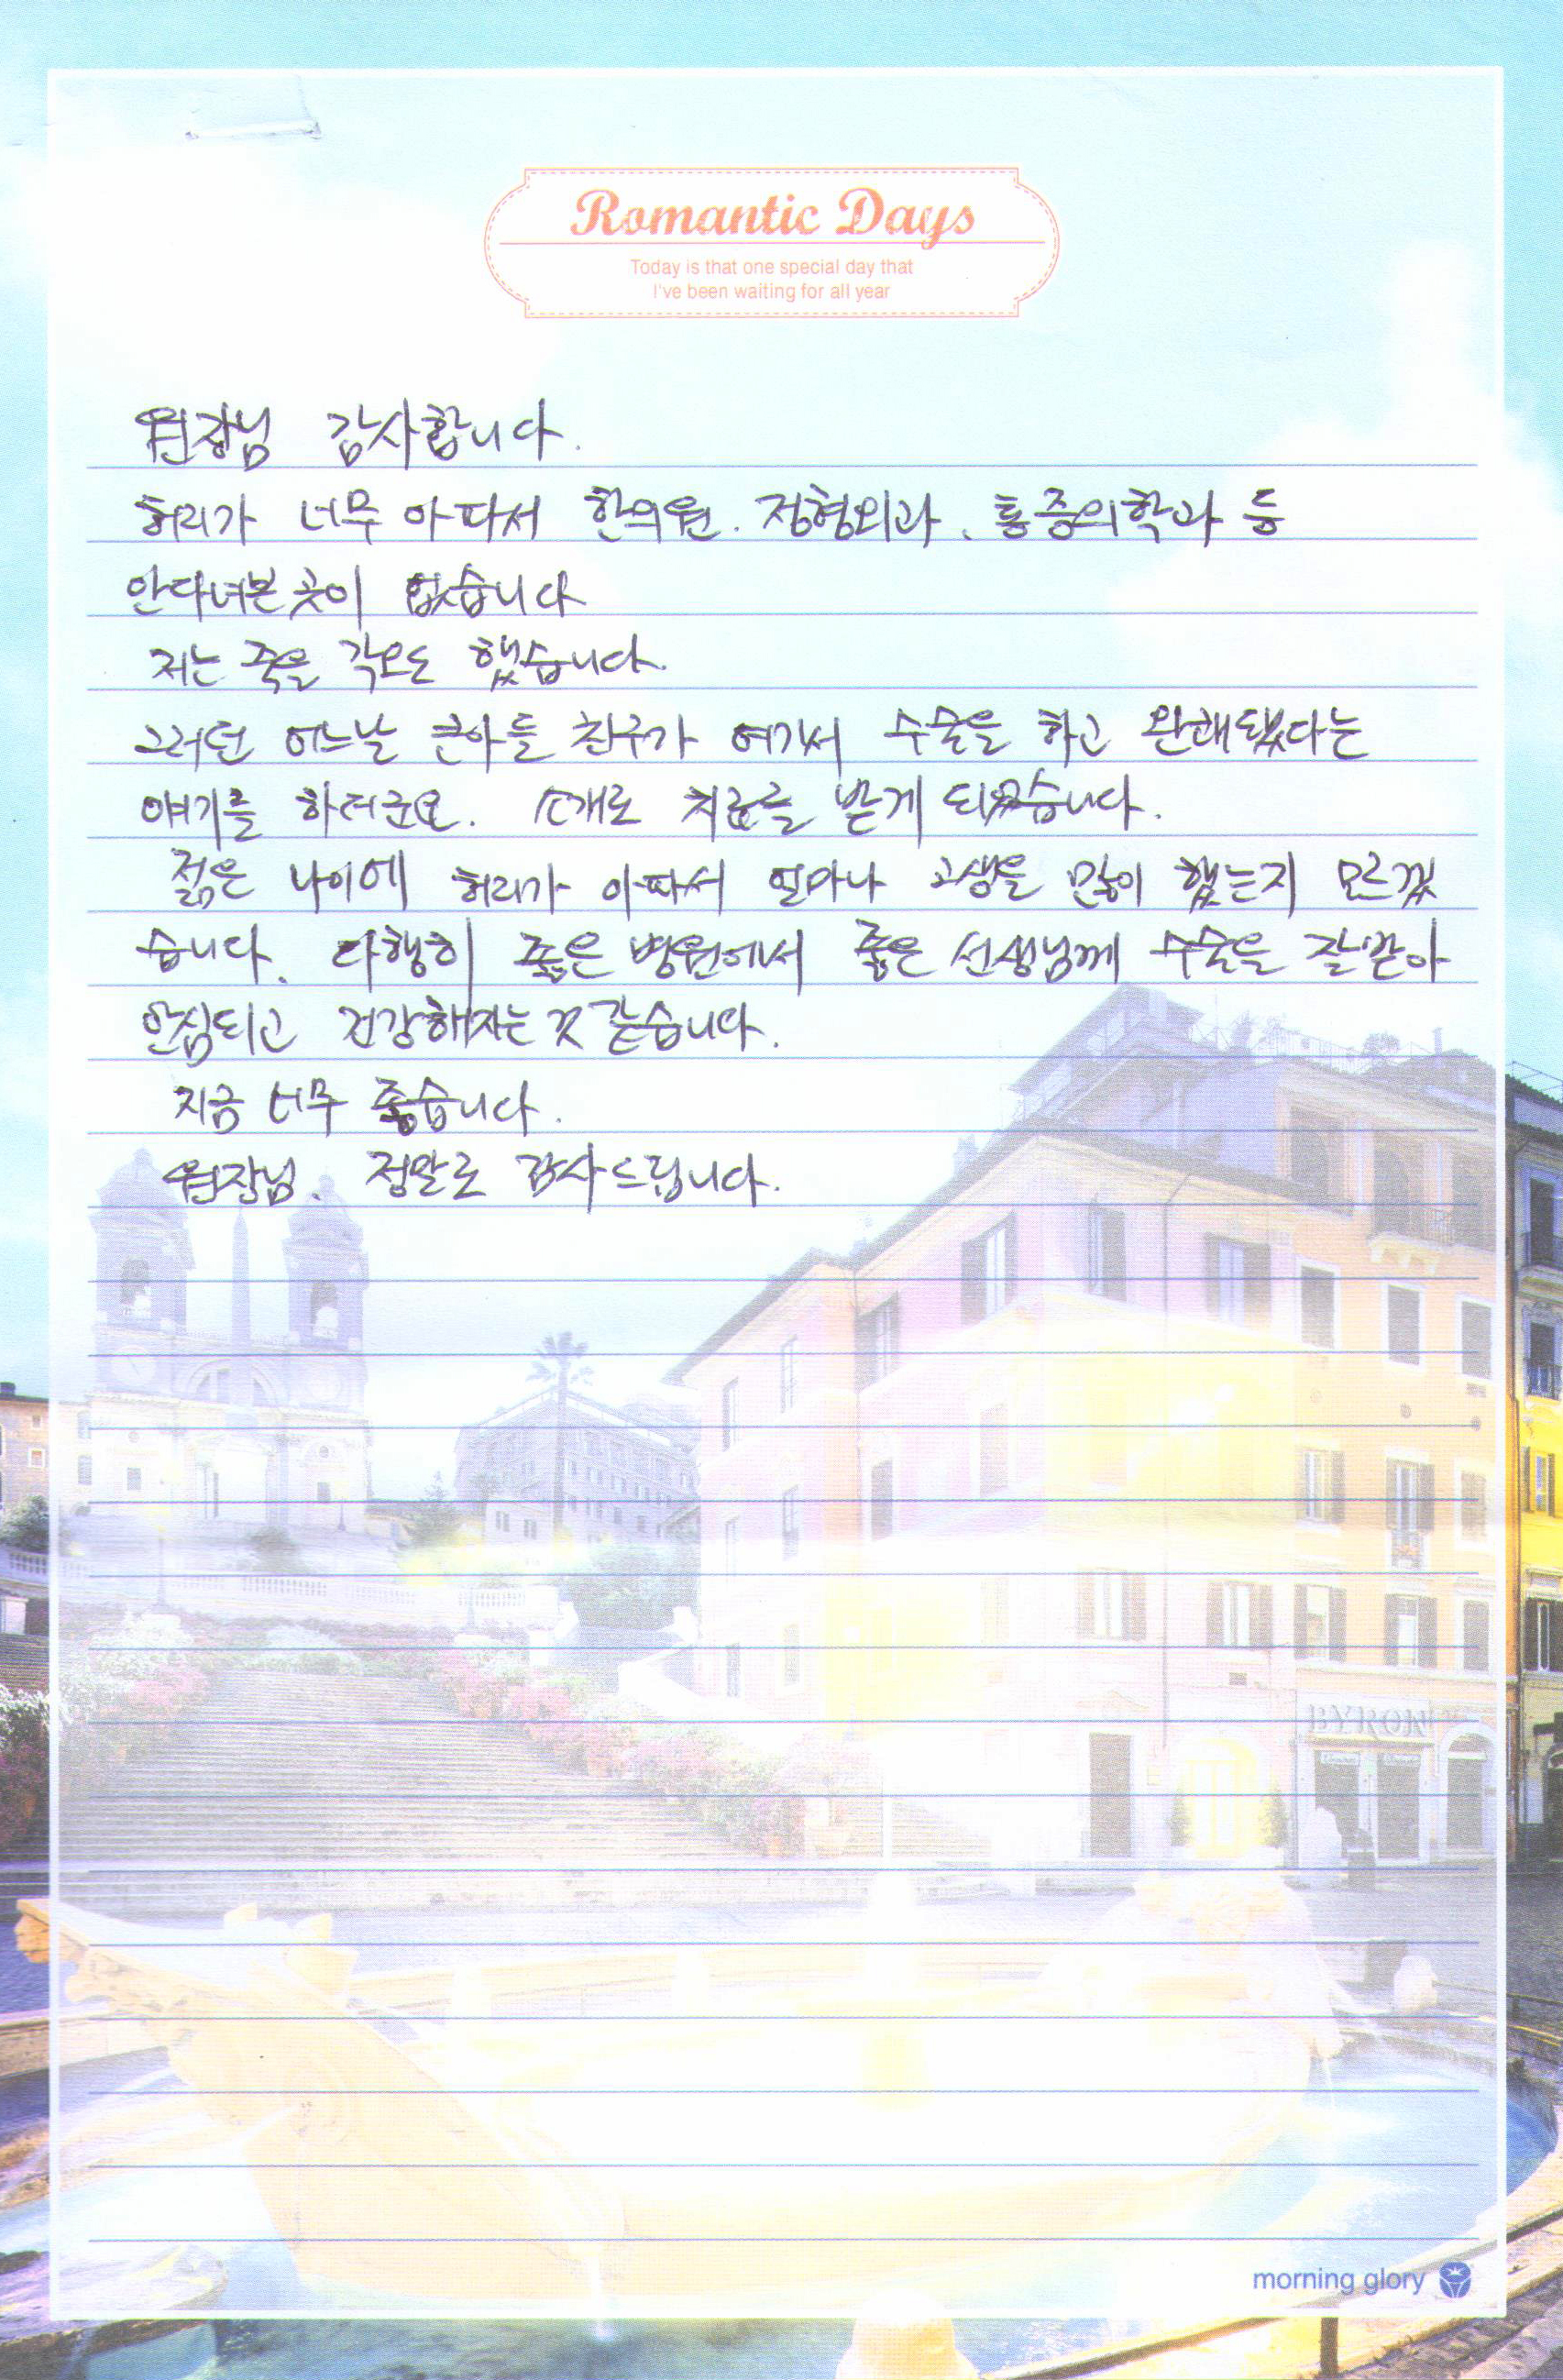 Romantic Days
Today is that one special day that
I've been waiting for all year
원장님 감사합니다.
허리가 너무 아파서 한의원. 정형외과. 통증의학과 등
안다녀본 곳이 없습니다
저는 죽을 각오도 했습니다.
그러던 어느날 큰아들 친구가 여기서 수술을 하고 완쾌됐다는
얘기를 하더군요. 소개로 치료를 받게 되었습니다.
젊은 나이에 허리가 아파서 얼마나 고생을 많이 했는지 모르겠
습니다. 다행히 좋은 병원에서 좋은 선생님께 수술을 잘받아
안심되고 건강해지는 것 같습니다.
지금 너무 좋습니다.
원장님. 정말로 감사드립니다.
BYRON
morning glory